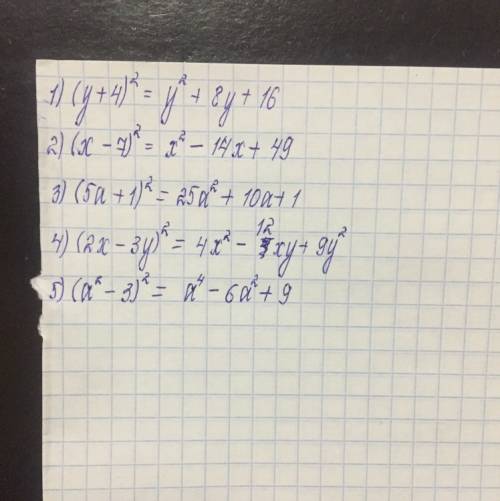 1) (y+4)² = y² + 8y + 16
2) (x - 7)² = x² - 14x + 49
3) (5a + 1)² = 25a² + 10a + 1
4) (2x - 3y)² = 4x² - 12xy + 9y²
5) (a² - 3)² = a⁴ - 6a² + 9